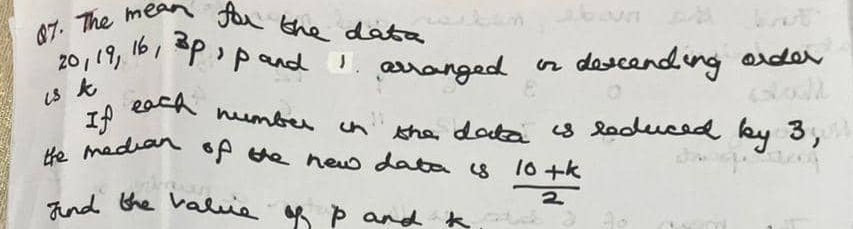 Q7. The mean for the data
20, 19, 16, 3p, p and 1. arranged in descending order
is k
If each number in the data is reduced by 3,
the median of the new data is 10+k
2
Find the value of p and k